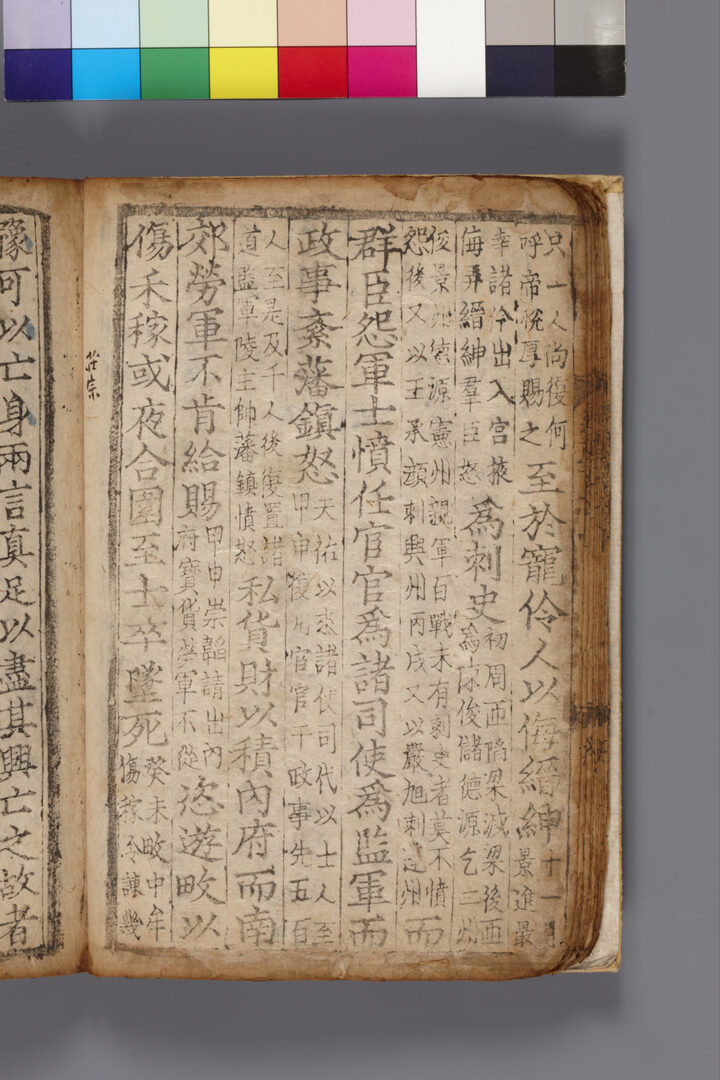 只一人尚復何
呼帝悅厚賜之
至於寵伶人以侮縉紳
十一月
景進最
幸諸伶出入宮掖
侮弄縉紳羣臣怒
為刺史
初周匝陷梁滅梁後匝
為陳俊儲德源乞二州
俊景州德源憲州親軍百戰未有刺史者莫不憤
怨後又以王承顔刺興州丙戌又以嚴旭刺州
而
群臣怨軍士憤任官官為諸司使為監軍而
政事紊藩鎮怒
天佑以來諸使司代以士人至
甲申復用官官干政事先五百
人至是及千人後復置諸
道監軍陵主帥藩鎮憤怒
私貨財以積內府而南
郊勞軍不肯給賜
甲申崇韜請出內
府寶貨勞軍不從
恣遊畋以
傷禾稼或夜合圍至士卒墜死
癸未畋中牟
傷稼令諫幾
莊宗
豫可以亡身兩言真足以盡其興亡之故者